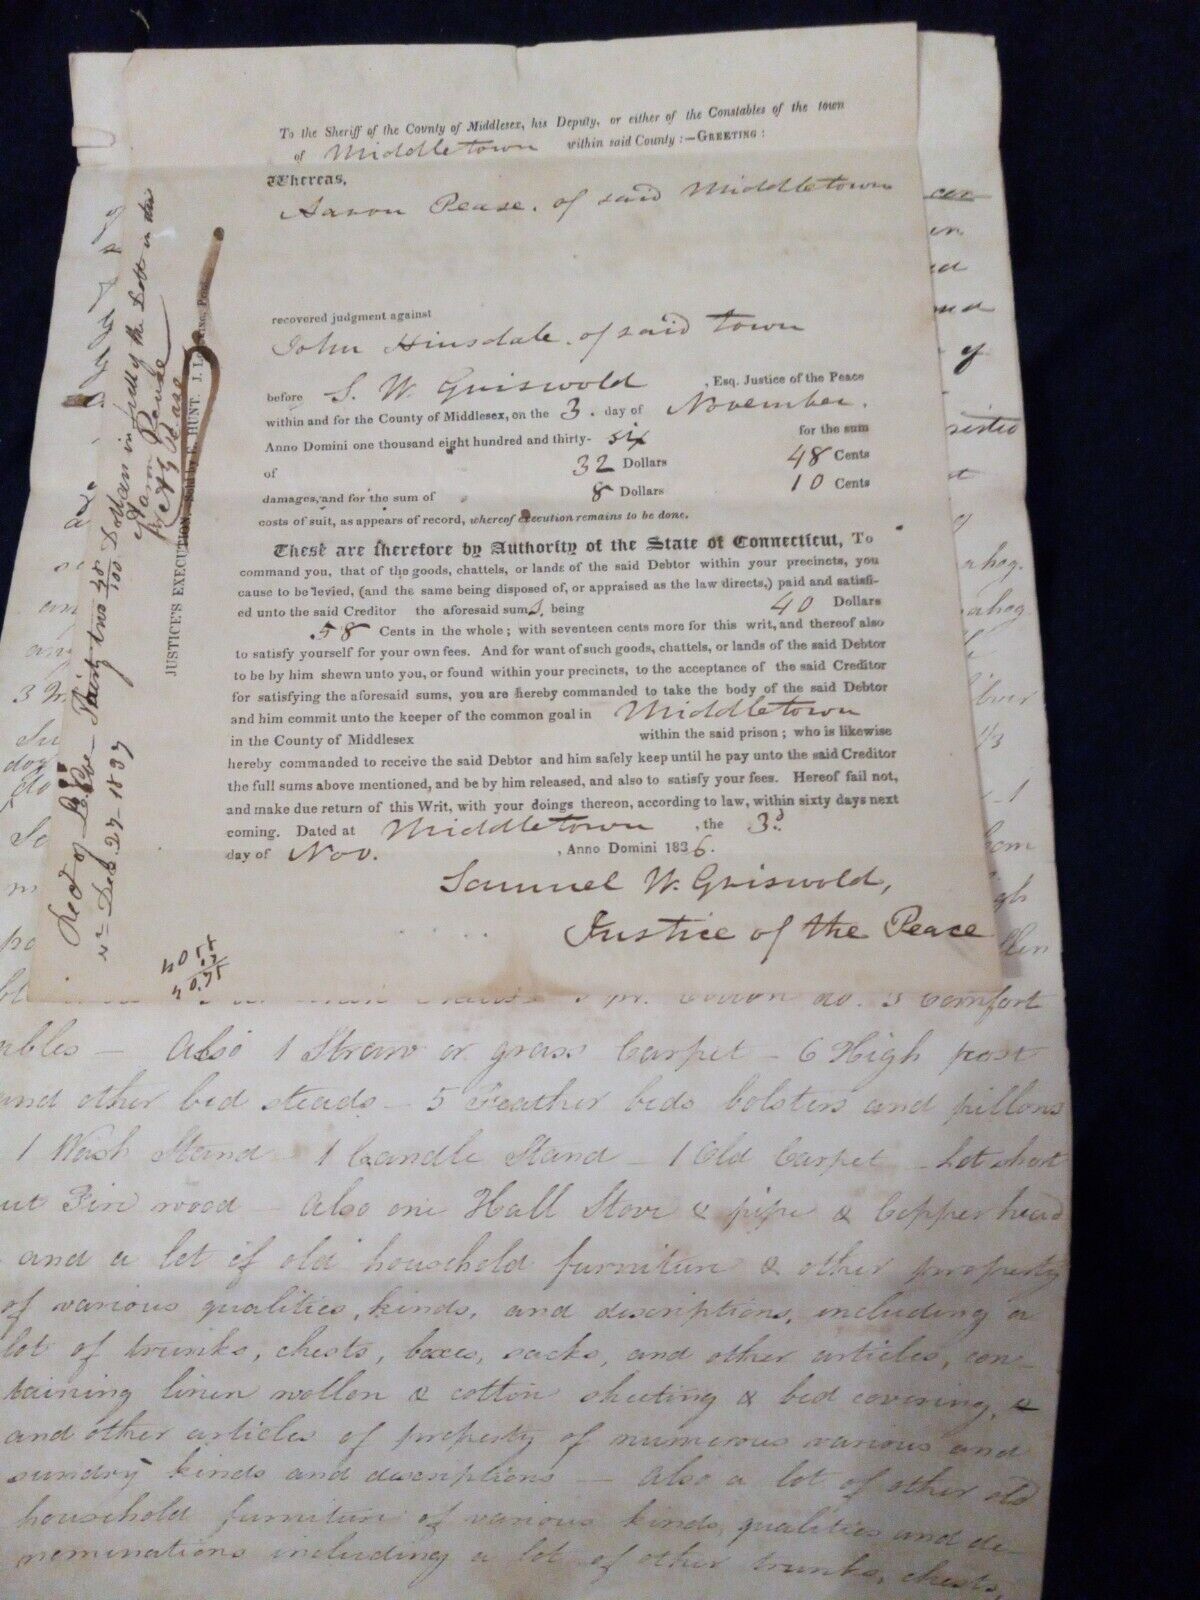 To the Sheriff of the County of Middlesex, his Deputy, or either of the Constables of the town
of Middletown within said County:—GREETING:
Whereas,
Aaron Pease, of said Middletown
recovered judgment against
John Hinsdale, of said town
before S. W. Griswold, Esq. Justice of the Peace
within and for the County of Middlesex, on the 3. day of November.
Anno Domini one thousand eight hundred and thirty-six for the sum
of 32 Dollars 48 Cents
damages, and for the sum of 8 Dollars 10 Cents
costs of suit, as appears of record, whereof execution remains to be done.
These are therefore by Authority of the State of Connecticut, To
command you, that of the goods, chattels, or lands of the said Debtor within your precincts, you
cause to be levied, (and the same being disposed of, or appraised as the law directs,) paid and satisfi-
ed unto the said Creditor the aforesaid sums, being 40 Dollars
58 Cents in the whole; with seventeen cents more for this writ, and thereof also
to satisfy yourself for your own fees. And for want of such goods, chattels, or lands of the said Debtor
to be by him shewn unto you, or found within your precincts, to the acceptance of the said Creditor
for satisfying the aforesaid sums, you are hereby commanded to take the body of the said Debtor
and him commit unto the keeper of the common goal in Middletown
in the County of Middlesex within the said prison; who is likewise
hereby commanded to receive the said Debtor and him safely keep until he pay unto the said Creditor
the full sums above mentioned, and be by him released, and also to satisfy your fees. Hereof fail not,
and make due return of this Writ, with your doings thereon, according to law, within sixty days next
coming. Dated at Middletown, the 3d.
day of Nov. , Anno Domini 1836.
Samuel W. Griswold,
Justice of the Peace
JUSTICE'S EXECUTION, HUNT. J.
Thirty two 48/100 Dollars in full of the Debt
Aaron Pease
Dec. 27 1837
ables — Also 1 Straw or grass Carpet — 6 High post
and other bed steads — 5 Feather beds bolsters and pillows
1 Wash Stand — 1 Candle Stand — 1 Old Carpet — Lot short
ut Fire wood — Also one Hall Stove & pipe & Copper head
and a lot of old household furniture & other property
of various qualities, kinds, and descriptions, including a
lot of trunks, chests, boxes, sacks, and other articles, con-
taining linen wollen & cotton sheeting & bed covering, &
and other articles of property of numerous various and
sundry kinds and descriptions — Also a lot of other old
household furniture of various kinds, qualities and de-
nominations including a lot of other trunks, chests,